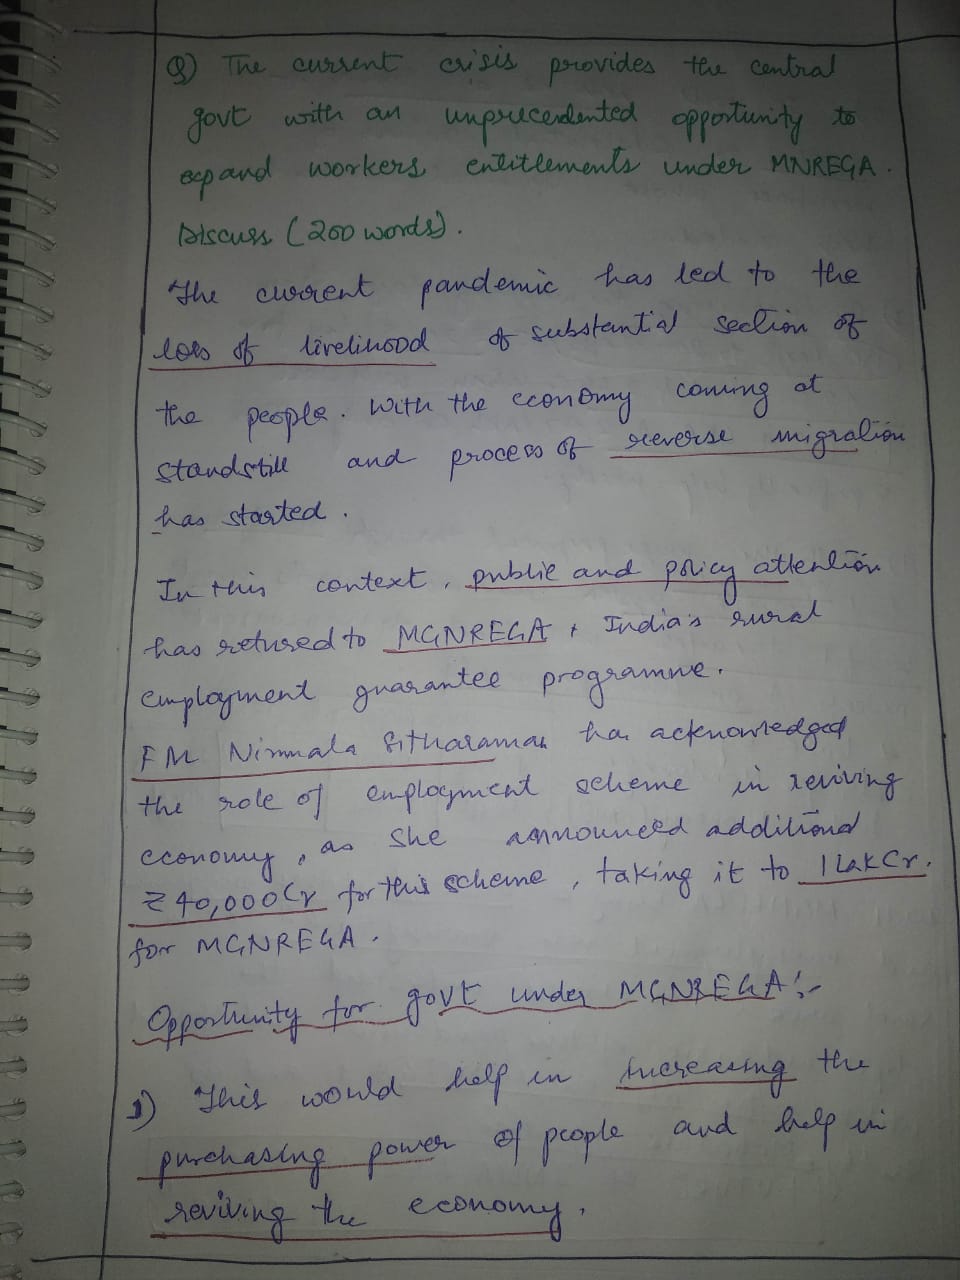 Q) The current crisis provides the central
govt with an unprecedented opportunity to
expand workers entitlements under MNREGA.
Discuss (200 words).
The current pandemic has led to the
loss of livelihood of substantial section of
the people. With the economy coming at
standstill and process of reverse migration
has started.
In this context, public and policy attention
has retured to MGNREGA, India's rural
employment guarantee programme.
FM Nirmala Sitharaman has acknowledged
the role of employment scheme in reviving
economy, as she announced additional
₹40,000Cr for this scheme, taking it to 1 Lak Cr.
for MGNREGA.
Opportunity for govt under MGNREGA:-
1) This would help in increasing the
purchasing power of people and help in
reviving the economy.